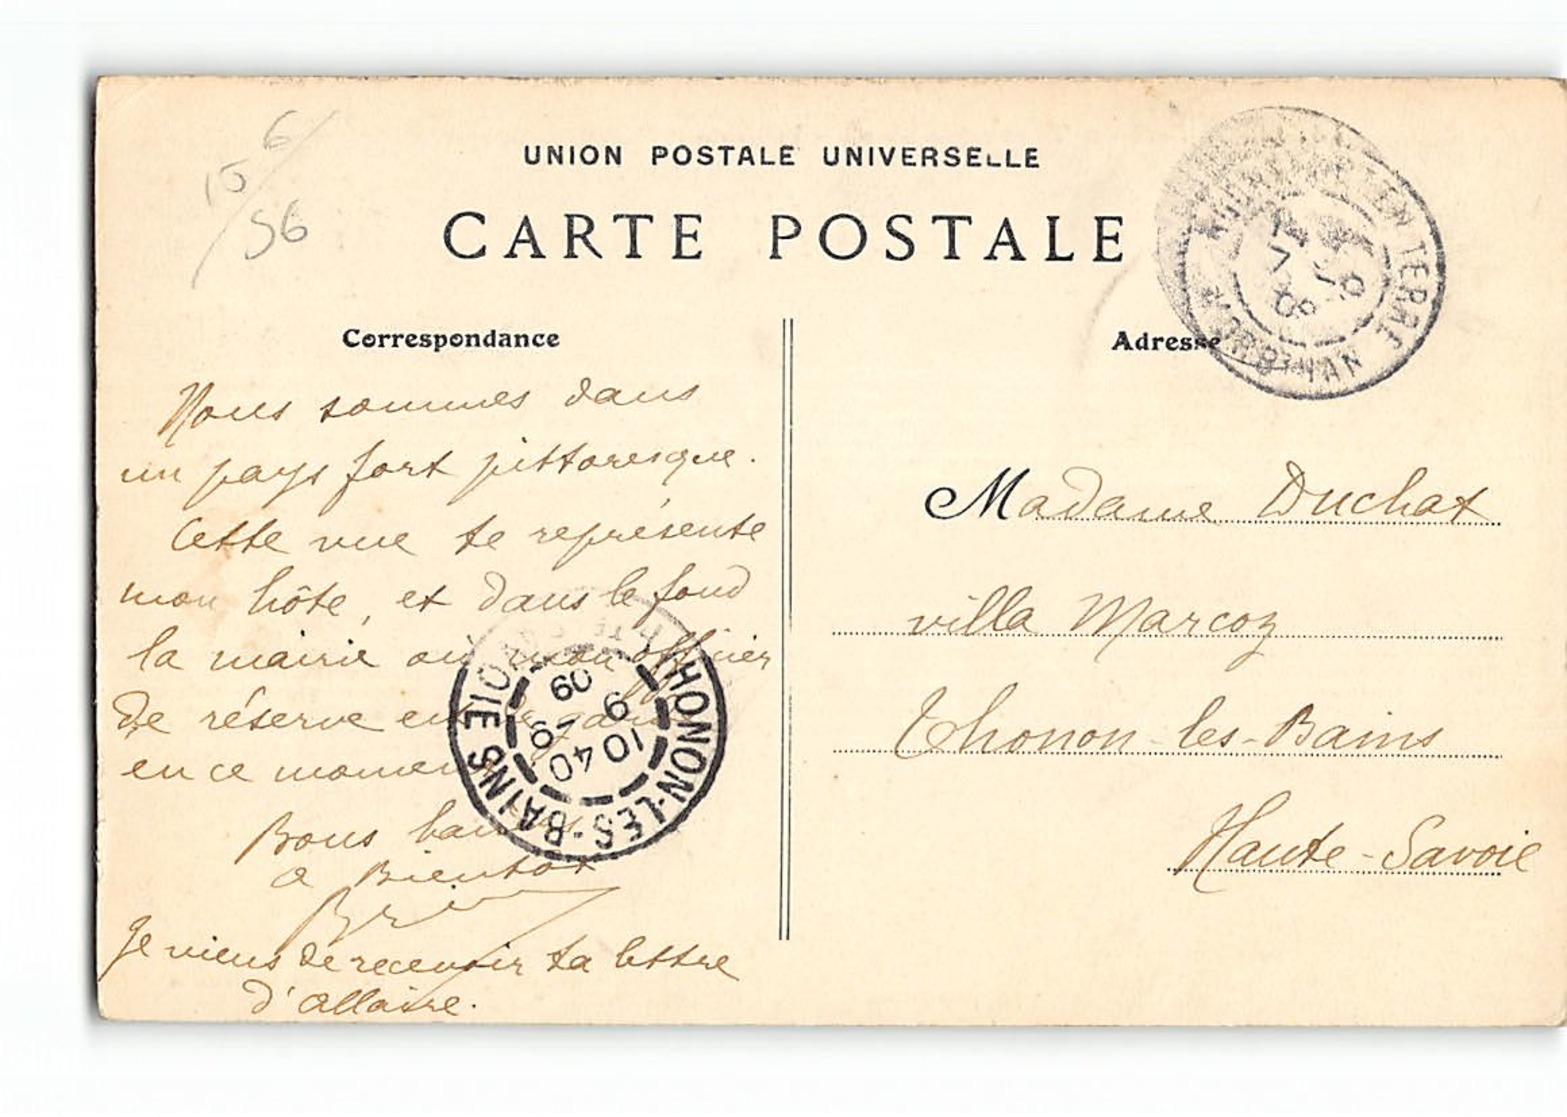 6
15
56
UNION POSTALE UNIVERSELLE
CARTE POSTALE
Correspondance
Adresse
EN TERRE
MORBIHAN
Nous sommes dans
un pays fort pittoresque.
Cette vue te représente
mon hôte, et dans le fond
la mairie où mon officier
de réserve est
en ce moment
Bons
a Bientot
Je viens de recevoir ta lettre
d'Allaire.
THONON-LES-BAINS
HTE SAVOIE
10 40
9 -9
09
Madame Duchat
villa Marcoz
Thonon-les-Bains
Haute-Savoie